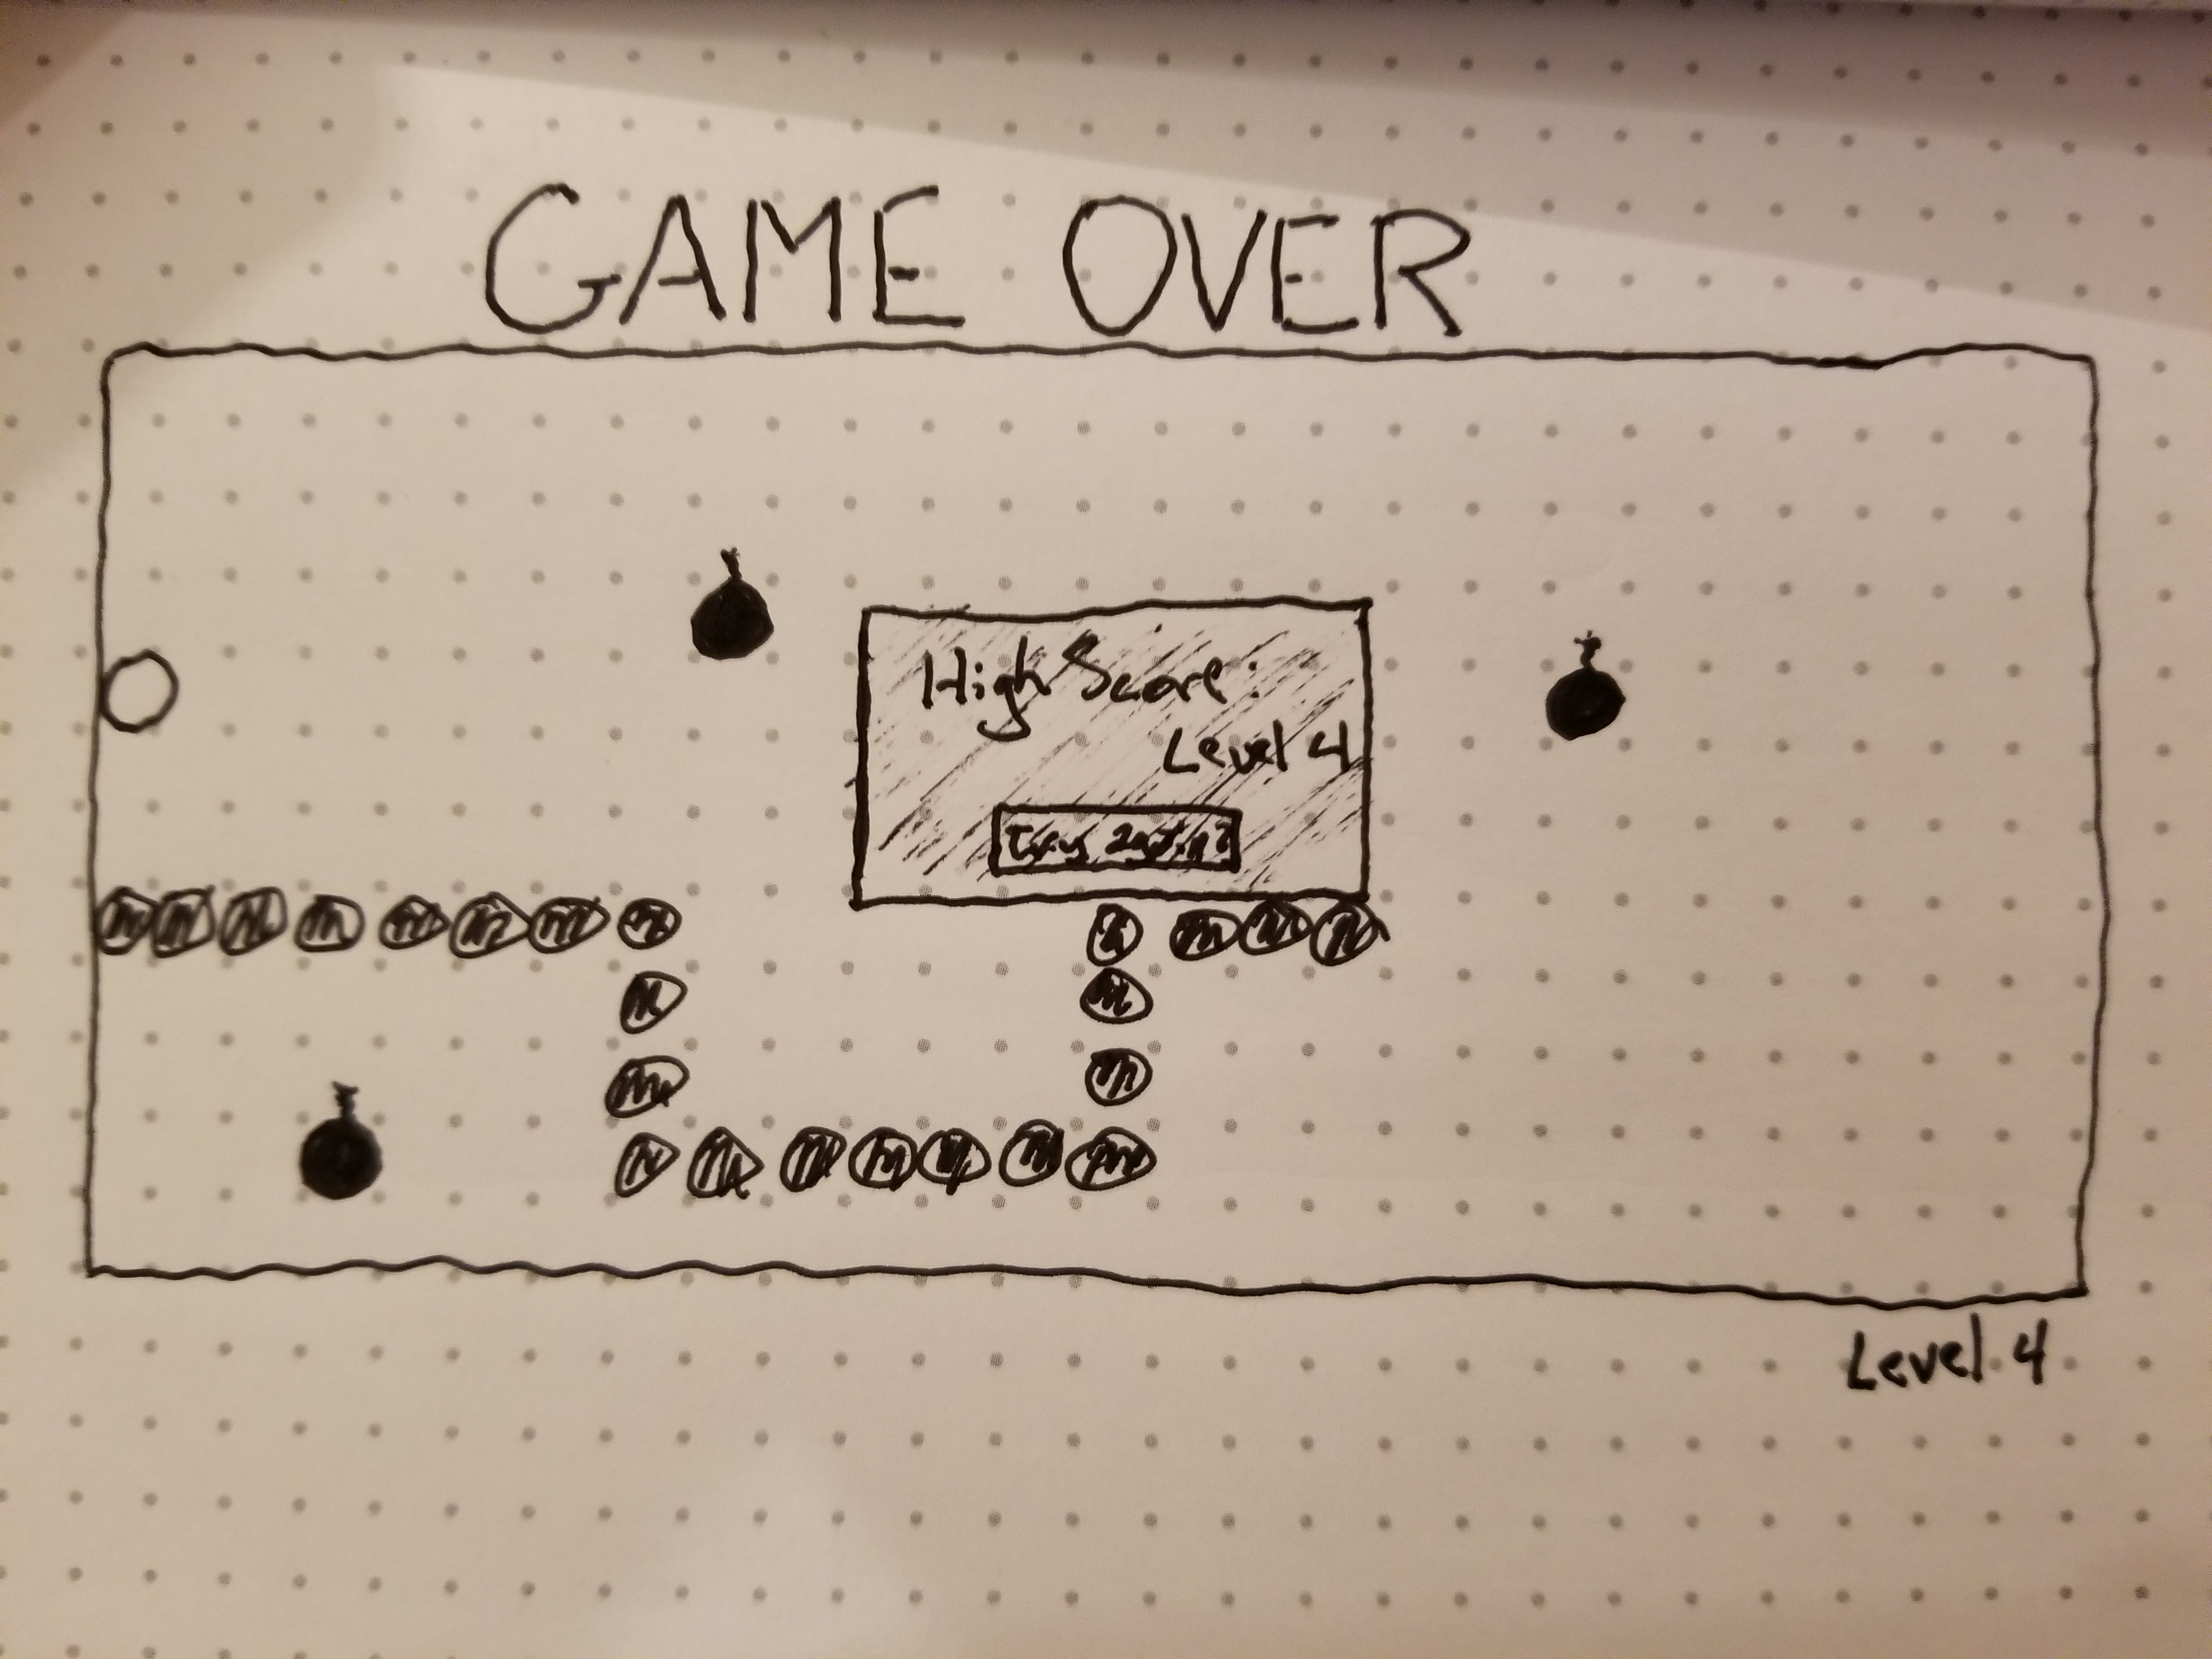 GAME OVER
High Score:
Level 4
Try again?
Level 4